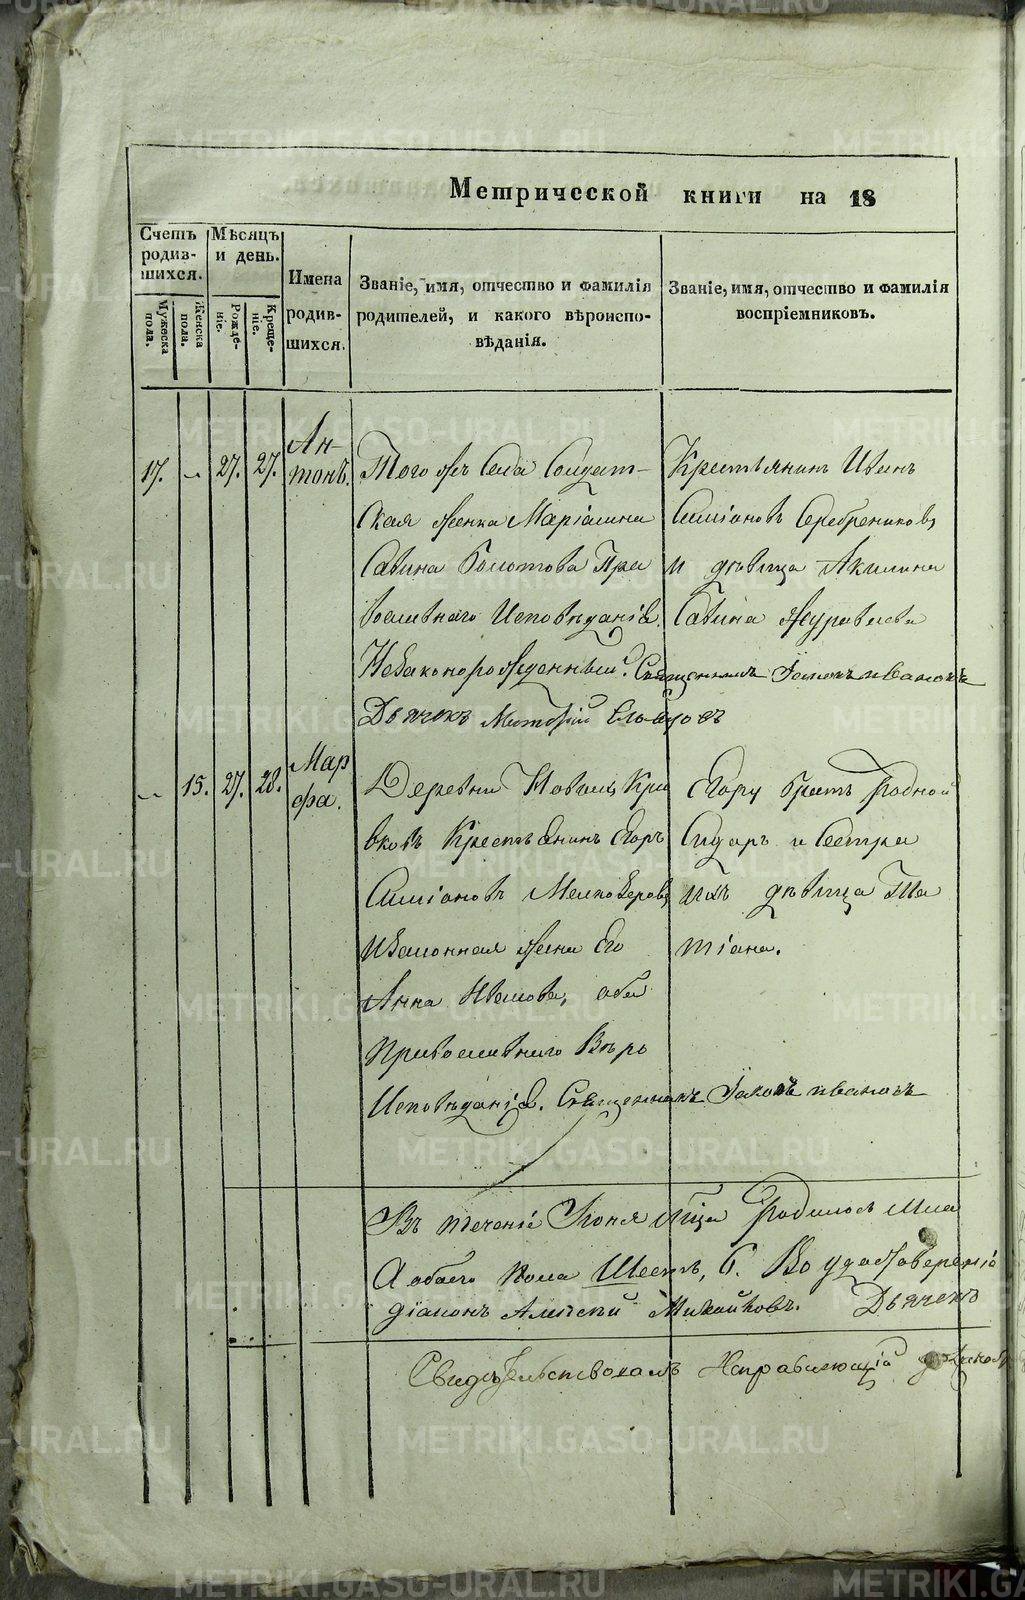 Метрической книги на 18
Счетъ родившихся.
Мужеска пола.
Женска пола.
Мѣсяцъ и день.
Рожденіе.
Крещеніе.
Имена родившихся.
Званіе, имя, отчество и фамилія родителей, и какого вѣроисповѣданія.
Званіе, имя, отчество и фамилія воспріемниковъ.
17. 27. 27.
Ан-
тонъ.
Того жъ Села Солдат-
ская женка Маріамна
Савина Болотова Пра
вославнаго Исповѣданія.
Незаконорожденный. Священникъ Іаковъ Ивановъ
Дьячекъ
Крестьянинъ Иванъ
Симіоновъ Серебрениковъ,
и дѣвица Акилина
Савина Журавлева
15. 27. 28.
Мар
фа.
Деревни Новыхъ Кри
вковъ Крестьянинъ Егоръ
Симіоновъ Мелкозеровъ
и Законная жена Его
Анна Иванова, оба
Православнаго Вѣро
Исповѣданія. Священникъ Іаковъ Ивановъ
Егору братъ родной
Сидаръ и Сестра
ихъ дѣвица Та
тіана.
Въ теченіе Іюня м-ца родилось мла
д обоего пола Шесть, 6. Во удостовереніе
діаконъ Алексѣй Дьячекъ
Свидѣтельствовалъ Исправляющій
METRIKI.GASO-URAL.RU